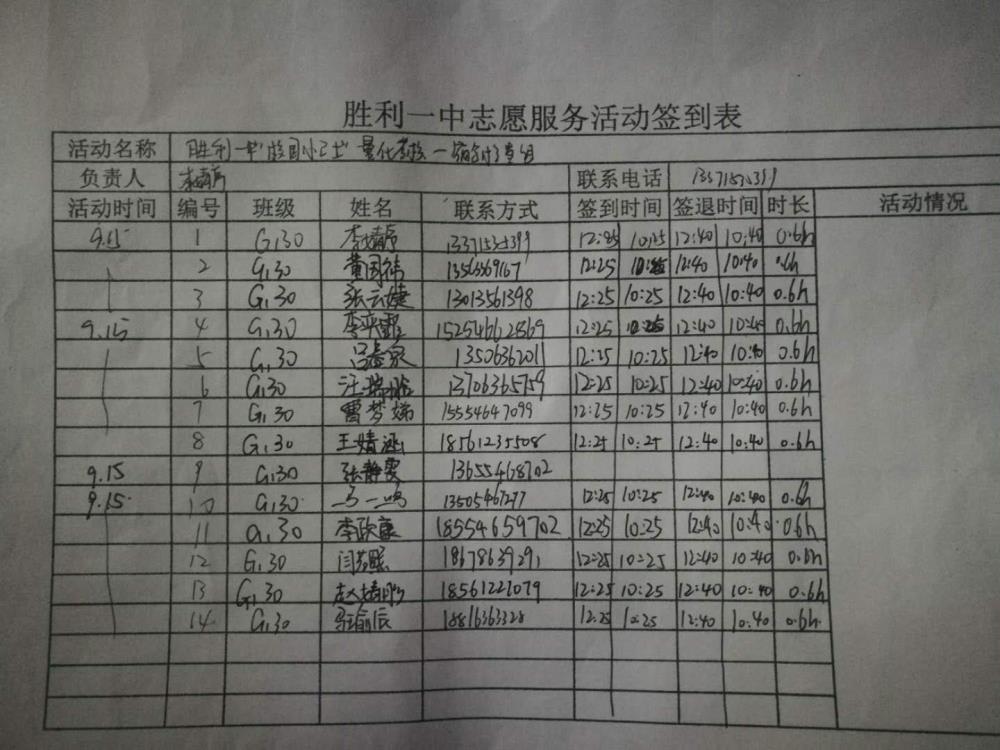 胜利一中志愿服务活动签到表
活动名称 胜利一中"校园小卫士"量化考核
负责人 联系电话
活动时间 编号 班级 姓名 联系方式 签到时间 签退时间 时长 活动情况
9.15 1 G130 12:25 10:25 12:40 10:40 0.6h
2 G130 12:25 10:25 12:40 10:40 0.6h
3 G130 张云婕 13013561398 12:25 10:25 12:40 10:40 0.6h
9.15 4 G130 李奕霏 15254662869 12:25 10:25 12:40 10:40 0.6h
5 G130 13506362011 12:25 10:25 12:40 10:40 0.6h
6 G130 13706365759 12:25 10:25 12:40 10:40 0.6h
7 G130 曹梦娣 15554647099 12:25 10:25 12:40 10:40 0.6h
8 G130 王婧涵 18561235508 12:25 10:25 12:40 10:40 0.6h
9.15 9 G130 张静雯 13655468702
9.15 10 G130 马一鸣 13505467277 12:25 10:25 12:40 10:40 0.6h
11 G130 李欣康 18554659702 12:25 10:25 12:40 10:40 0.6h
12 G130 18678639291 12:25 10:25 12:40 10:40 0.6h
13 G130 18561227079 12:25 10:25 12:40 10:40 0.6h
14 G130 18816363328 12:25 10:25 12:40 10:40 0.6h